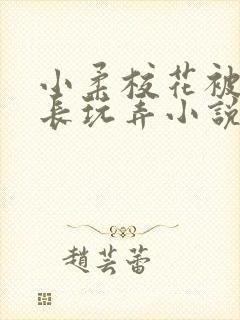 小柔校花被
長玩弄小說
趙芸蕾